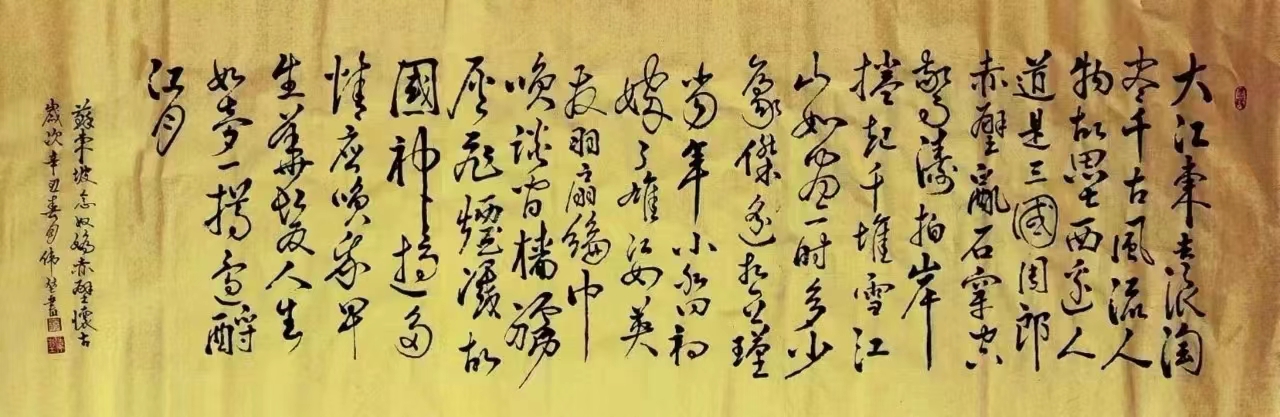 大江東去浪淘
尽千古風流人
物故壘西邊人
道是三國周郎
赤壁亂石穿空
驚濤拍岸
捲起千堆雪江
山如畫一时多少
豪傑遙想公瑾
當年小喬初
嫁了雄姿英
发羽扇綸巾
咲談间檣艣
灰飛煙滅故
國神遊多
情應咲我早
生華髮人生
如夢一樽還酹
江月
蘇東坡念奴嬌赤壁懷古
歲次辛丑春月伟書